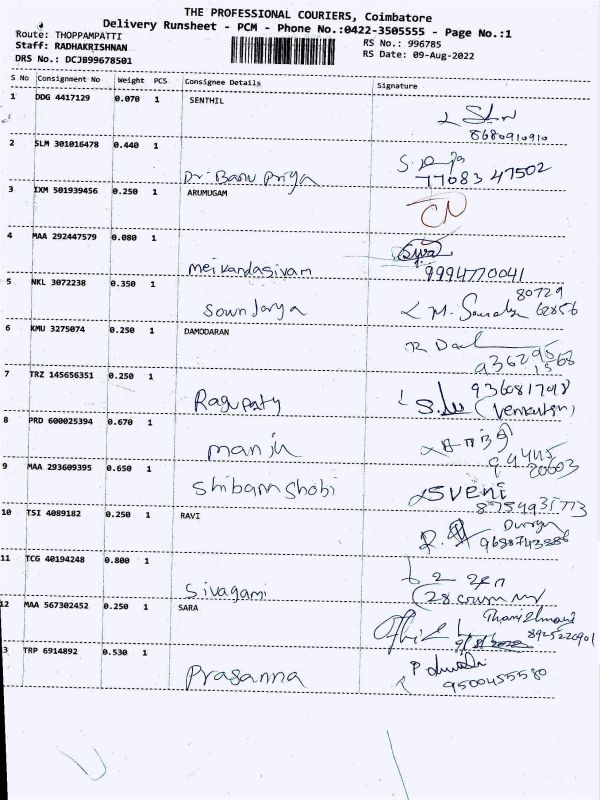 THE PROFESSIONAL COURIERS, Coimbatore
Delivery Runsheet - PCM - Phone No.:0422-3505555 - Page No.:1
Route: THOPPAMPATTI
Staff: RADHAKRISHNAN RS No.: 996785
DRS No.: DCJB99678501 RS Date: 09-Aug-2022
S No Consignment No Weight PCS Consignee Details Signature
1 DDG 4417129 0.070 1 SENTHIL
8680910910
2 SLM 301016478 0.440 1 Dr. Banu Priya
77083 47502
3 IXM 501939456 0.250 1 ARUMUGAM
4 MAA 292447579 0.080 1 meikandasivam
9994770041
5 NKL 3072238 0.350 1 Sowndarya
80729
62856
6 KMU 3275074 0.250 1 DAMODARAN
7 TRZ 145656351 0.250 1 Ragupaty
8 PRD 600025394 0.670 1 manju
9 MAA 293609395 0.650 1 Shibamshobi
sveni
10 TSI 4089182 0.250 1 RAVI
11 TCG 40194248 0.800 1 Sivagami
12 MAA 567302452 0.250 1 SARA
8925220901
3 TRP 6914892 0.530 1 Prasanna
9500455580